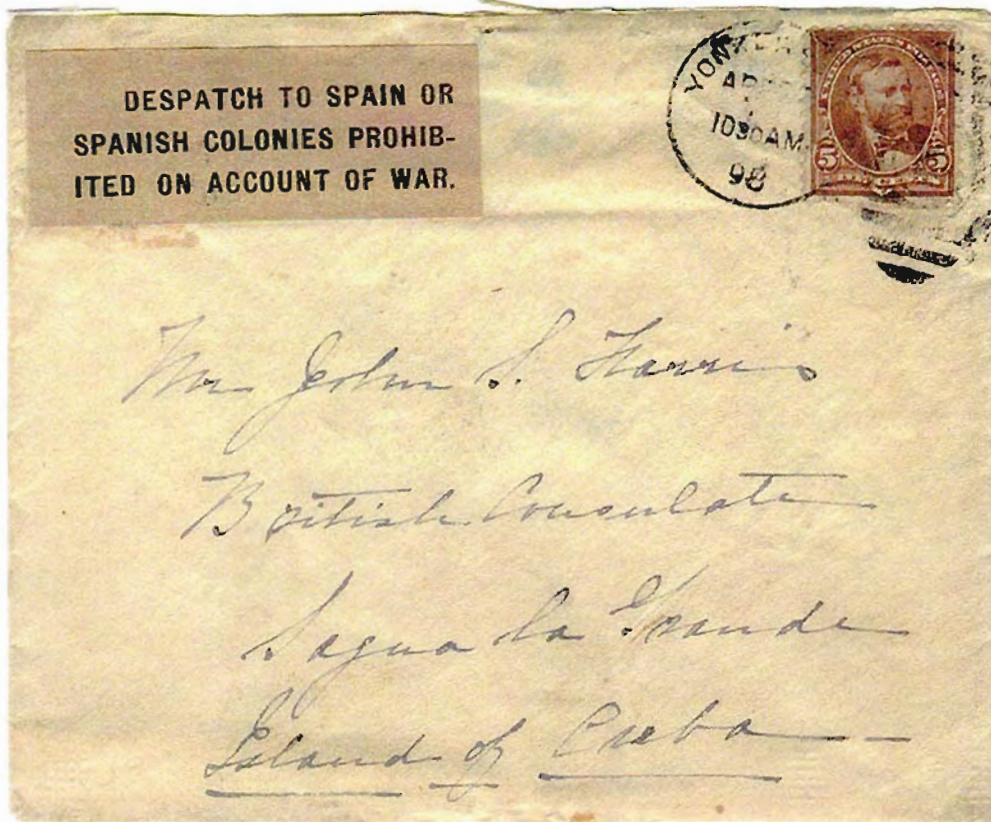 DESPATCH TO SPAIN OR
SPANISH COLONIES PROHIB-
ITED ON ACCOUNT OF WAR.
YONKERS
AP
1030AM
98
5 5
Mr John S. Harris
British Consulate
Sagua la Grande
Island of Cuba